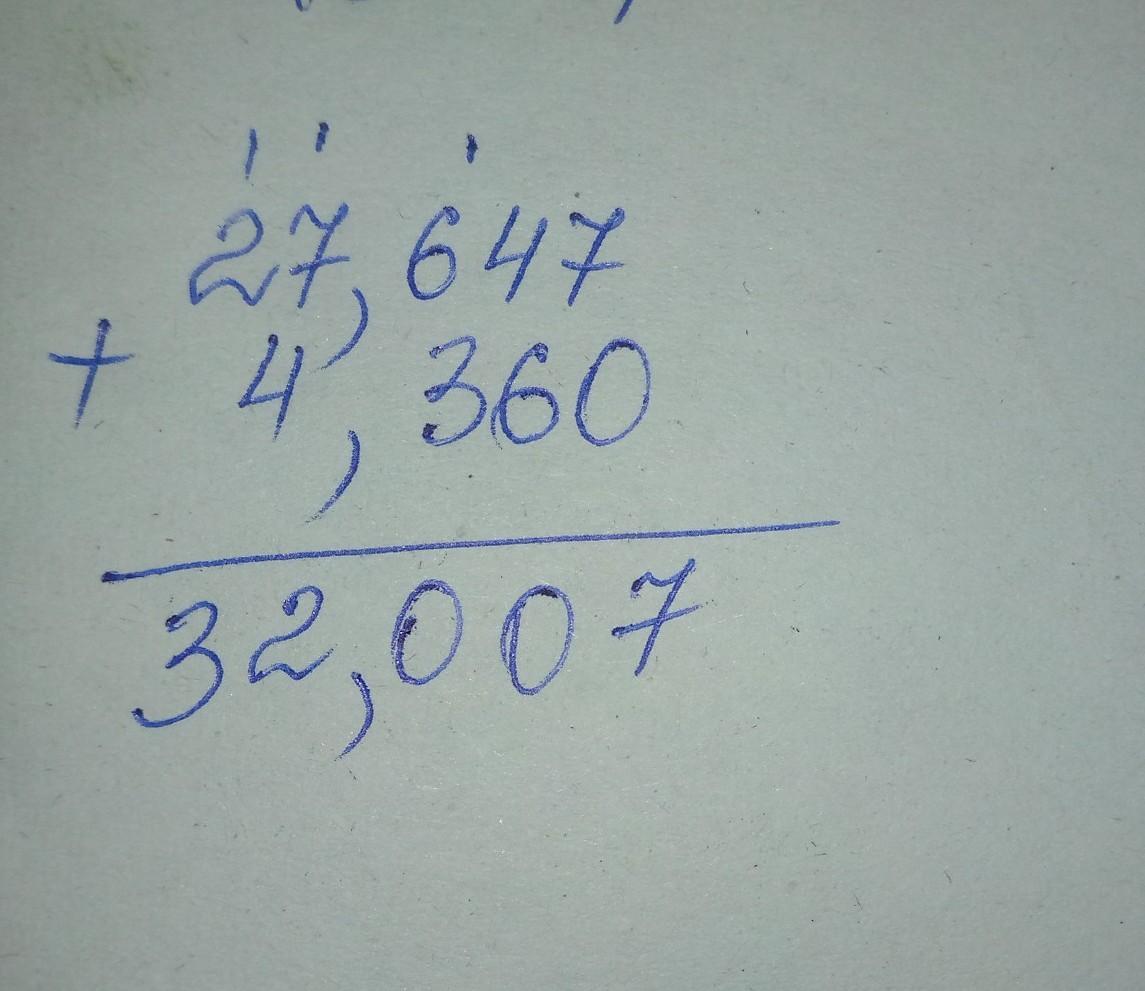 1 1 1
27,647
+ 4,360
32,007